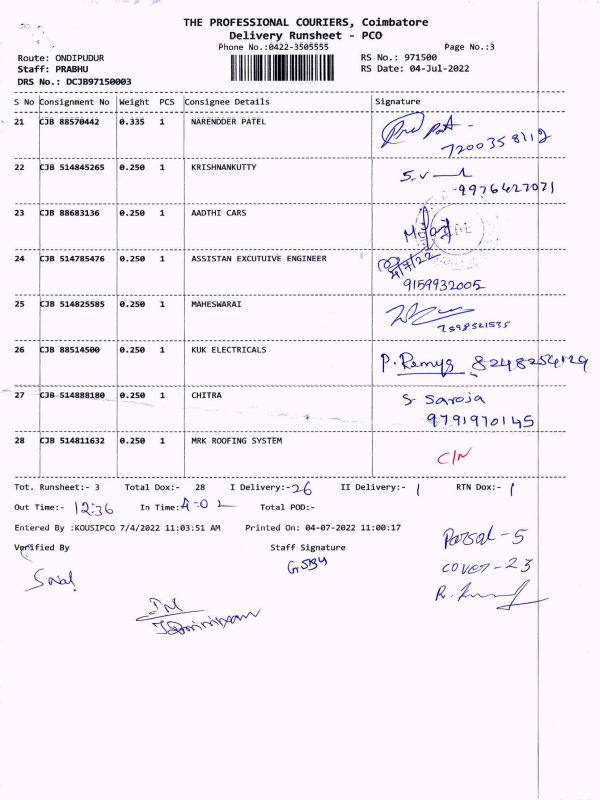 THE PROFESSIONAL COURIERS, Coimbatore
Delivery Runsheet - PCO
Phone No.:0422-3505555 Page No.:3
Route: ONDIPUDUR RS No.: 971500
Staff: PRABHU RS Date: 04-Jul-2022
DRS No.: DCJB97150003
S No Consignment No Weight PCS Consignee Details Signature
21 CJB 88570442 0.335 1 NARENDDER PATEL
7200358112
22 CJB 514845265 0.250 1 KRISHNANKUTTY S.V
9976427071
23 CJB 88683136 0.250 1 AADTHI CARS
24 CJB 514785476 0.250 1 ASSISTAN EXCUTUIVE ENGINEER
9159932005
25 CJB 514825585 0.250 1 MAHESWARAI
7598521535
26 CJB 88514500 0.250 1 KUK ELECTRICALS P. Remys 8248254129
27 CJB 514888180 0.250 1 CHITRA S Saroja
9791970145
28 CJB 514811632 0.250 1 MRK ROOFING SYSTEM C/N
Tot. Runsheet:- 3 Total Dox:- 28 I Delivery:- 26 II Delivery:- 1 RTN Dox:- 1
Out Time:- 12:36 In Time:- 4-02 Total POD:-
Entered By :KOUSIPCO 7/4/2022 11:03:51 AM Printed On: 04-07-2022 11:00:17
Verified By Staff Signature
Parsal - 5
cover - 23